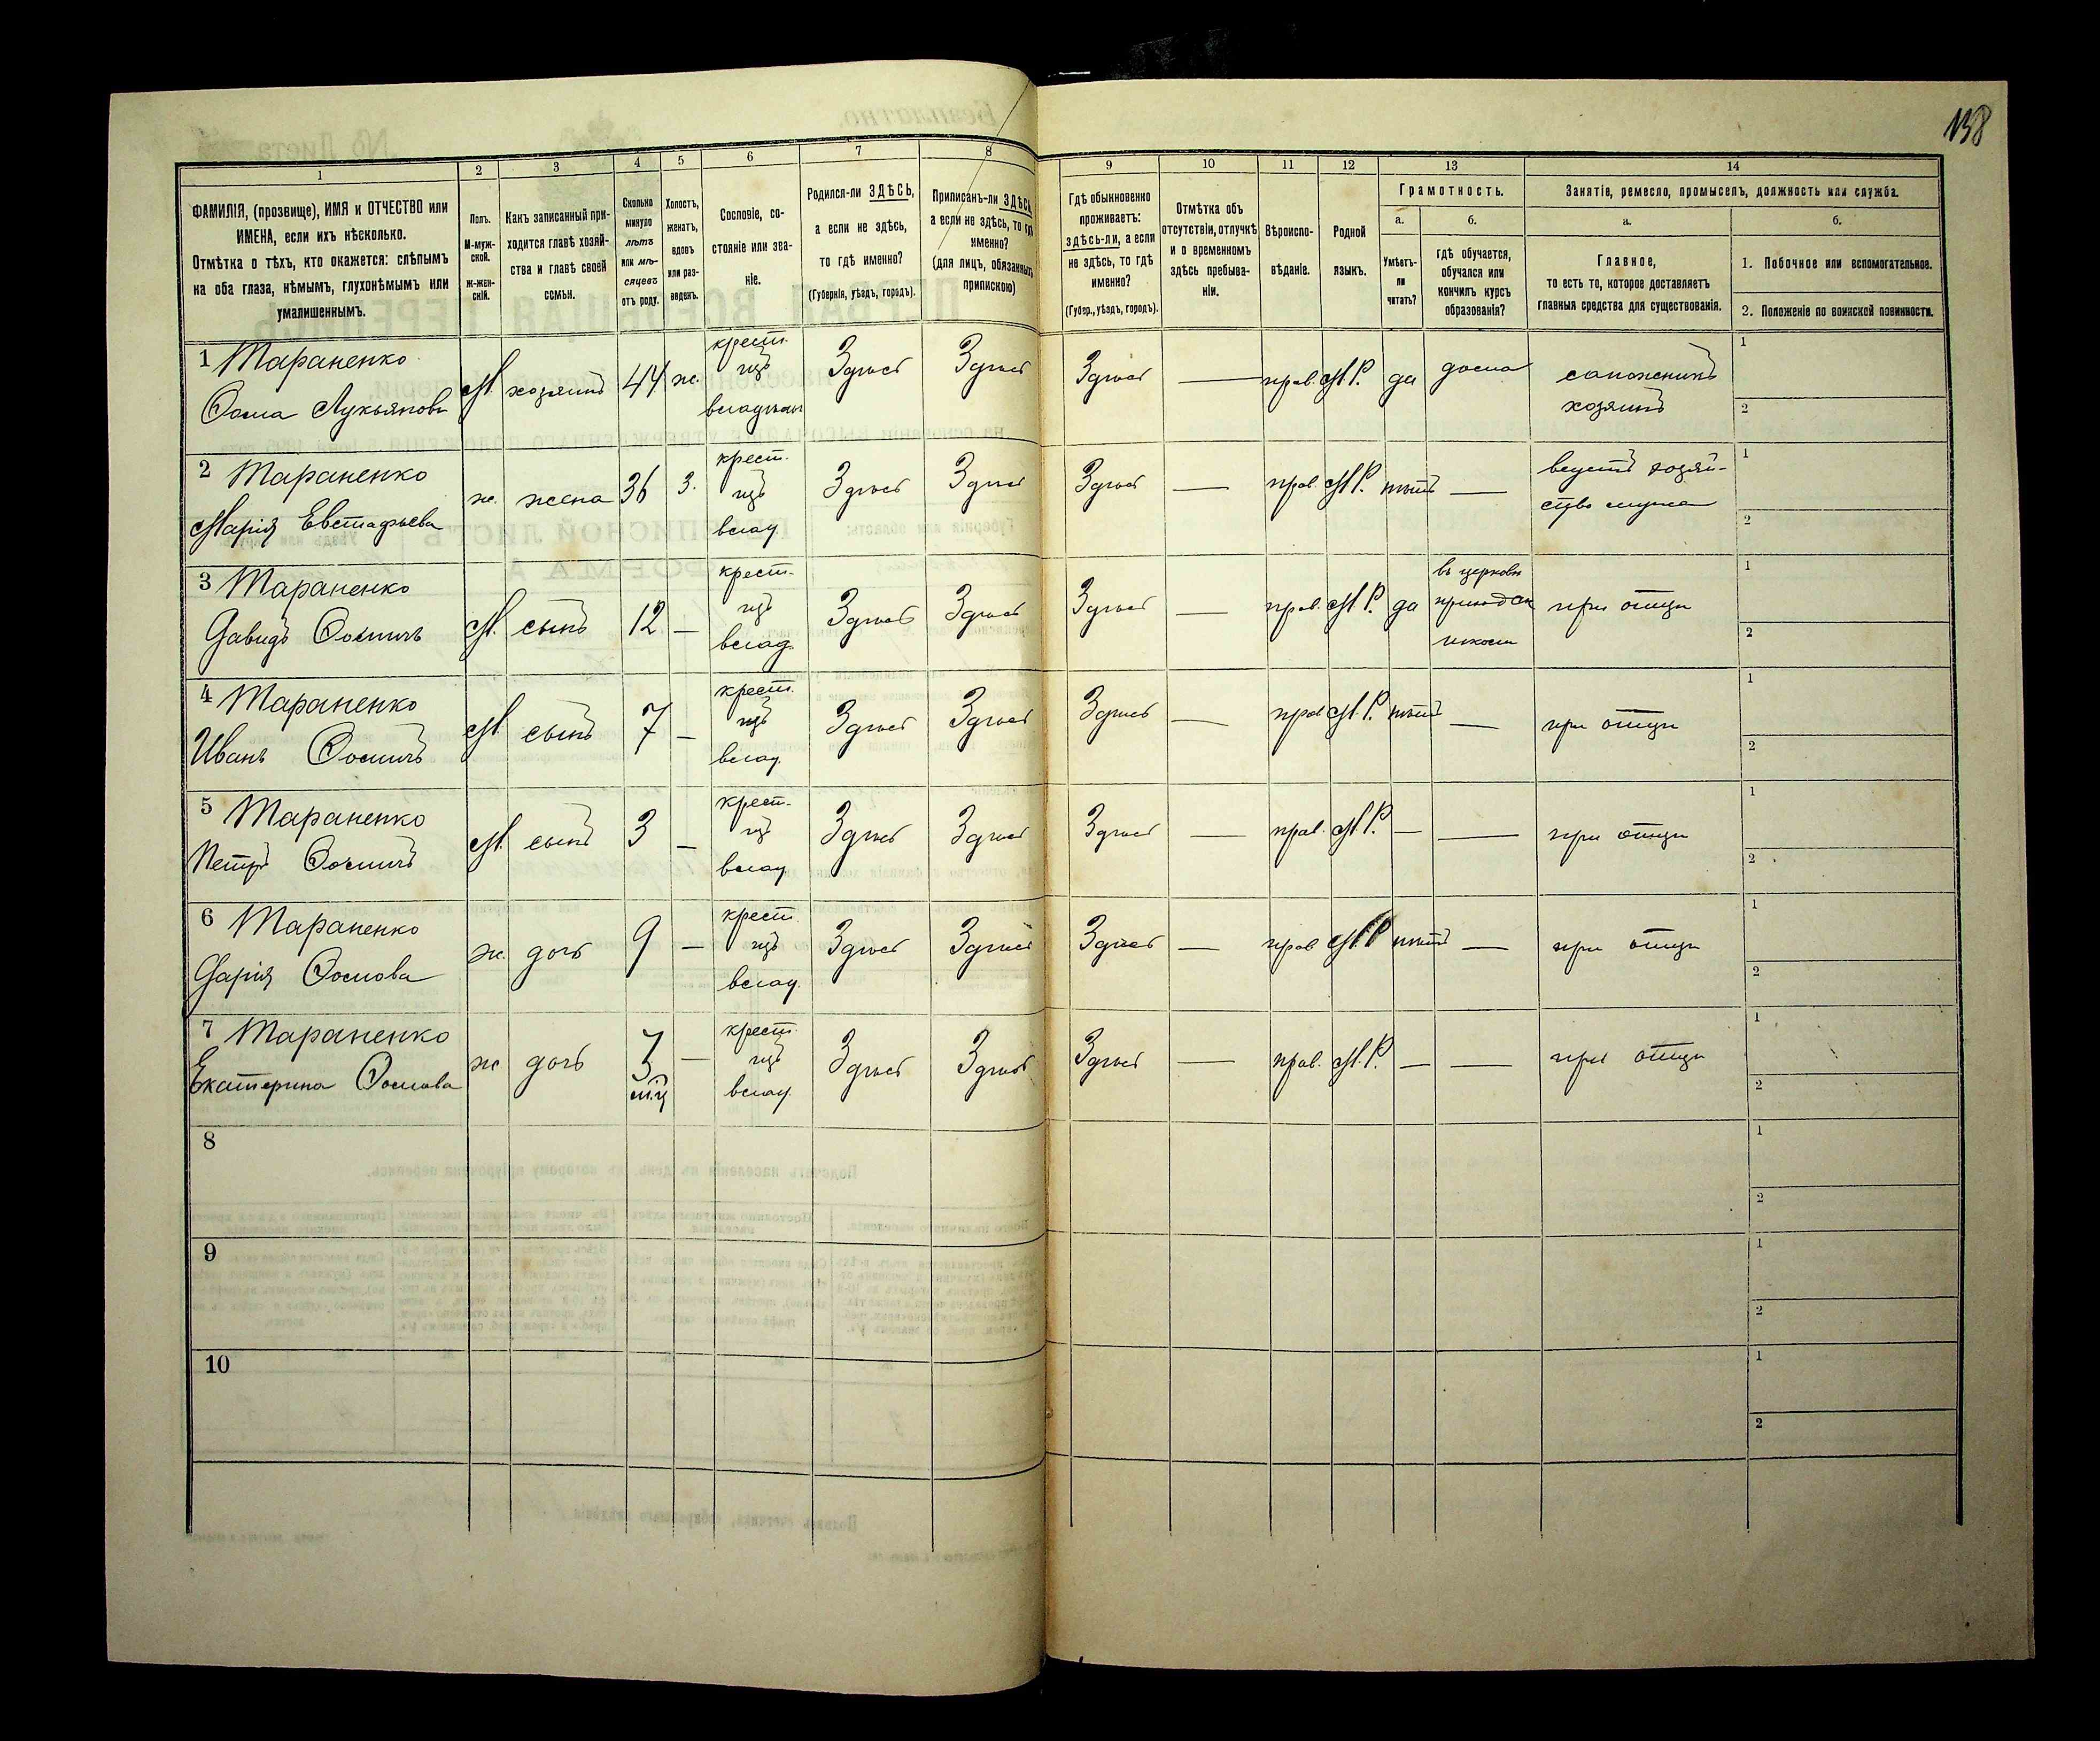 138
1 2 3 4 5 6 7 8 9 10 11 12 13 14
ФАМИЛІЯ, (прозвище), ИМЯ и ОТЧЕСТВО или
ИМЕНА, если ихъ нѣсколько.
Отмѣтка о тѣхъ, кто окажется: слѣпымъ
на оба глаза, нѣмымъ, глухонѣмымъ или
умалишеннымъ.
Полъ.
М-муж-
ской.
Ж-жен-
скій.
Какъ записанный при-
ходится главѣ хозяй-
ства и главѣ своей
семьи.
Сколько
минуло
лѣтъ
или мѣ-
сяцевъ
отъ роду.
Холостъ,
женатъ,
вдовъ
или раз-
веденъ.
Сословіе, со-
стояніе или зва-
ніе.
Родился-ли ЗДѢСЬ,
а если не здѣсь,
то гдѣ именно?
(Губернія, уѣздъ, городъ).
Приписанъ-ли ЗДѢСЬ
а если не здѣсь, то гдѣ
именно?
(для лицъ, обязанныхъ
припискою)
Гдѣ обыкновенно
проживаетъ:
здѣсь-ли, а если
не здѣсь, то гдѣ
именно?
(Губер., уѣздъ, городъ).
Отмѣтка объ
отсутствіи, отлучкѣ
и о временномъ
здѣсь пребыва-
ніи.
Вѣроиспо-
вѣданіе.
Родной
языкъ.
Грамотность.
а. б.
Умѣетъ-
ли
читать?
гдѣ обучается,
обучался или
кончилъ курсъ
образованія?
Занятіе, ремесло, промыселъ, должность или служба.
а. б.
Главное,
то есть то, которое доставляетъ
главныя средства для существованія.
1. Побочное или вспомогательное.
2. Положеніе по воинской повинности.
1 Тараненко
Ѳома Лукьяновъ
М. хозяинъ 44 ж.
крест.
изъ
владѣльч
Здѣсь Здѣсь Здѣсь — прав. М.Р. да дома
сапожникъ
хозяинъ
1
2
2 Тараненко
Марія Евстафьева
ж. жена 36 з.
крест.
изъ
влад.
Здѣсь Здѣсь Здѣсь — прав. М.Р. нѣтъ —
ведетъ хозяй-
ство мужа
1
2
3 Тараненко
Давидъ Ѳомичъ
М. сынъ 12 —
крест.
изъ
влад.
Здѣсь Здѣсь Здѣсь — прав. М.Р. да
въ церковн
приходск
школѣ
при отцѣ
1
2
4 Тараненко
Иванъ Ѳомичъ
М. сынъ 7 —
крест.
изъ
влад.
Здѣсь Здѣсь Здѣсь — прав М.Р. нѣтъ — при отцѣ
1
2
5 Тараненко
Петръ Ѳомичъ
М. сынъ 3 —
крест.
изъ
влад.
Здѣсь Здѣсь Здѣсь — прав. М.Р. — — при отцѣ
1
2
6 Тараненко
Дарія Ѳомова
ж. дочь 9 —
крест.
изъ
влад.
Здѣсь Здѣсь Здѣсь — прав М.Р нѣтъ — при отцѣ
1
2
7 Тараненко
Екатерина Ѳомова
ж дочь —
м.ц
крест.
изъ
влад.
Здѣсь Здѣсь Здѣсь — прав. М.Р. — — при отцѣ
1
2
8
1
2
9
1
2
10
1
2